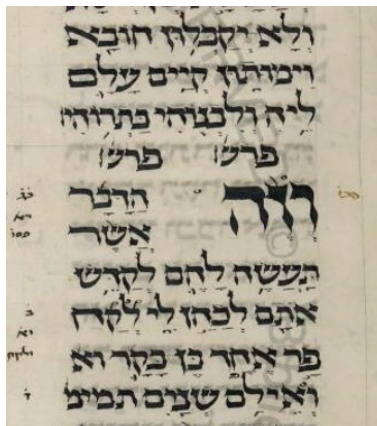 ולא יקבלון חובא
וימותון קיים עלם
ליה ולבנוהי בתרוהי
פרש פרש
וזה הדבר
אשר
תעשה להם לקדש
אתם לכהן לי לקח
פר אחד בן בקר וא
ואילם שנים תמימ